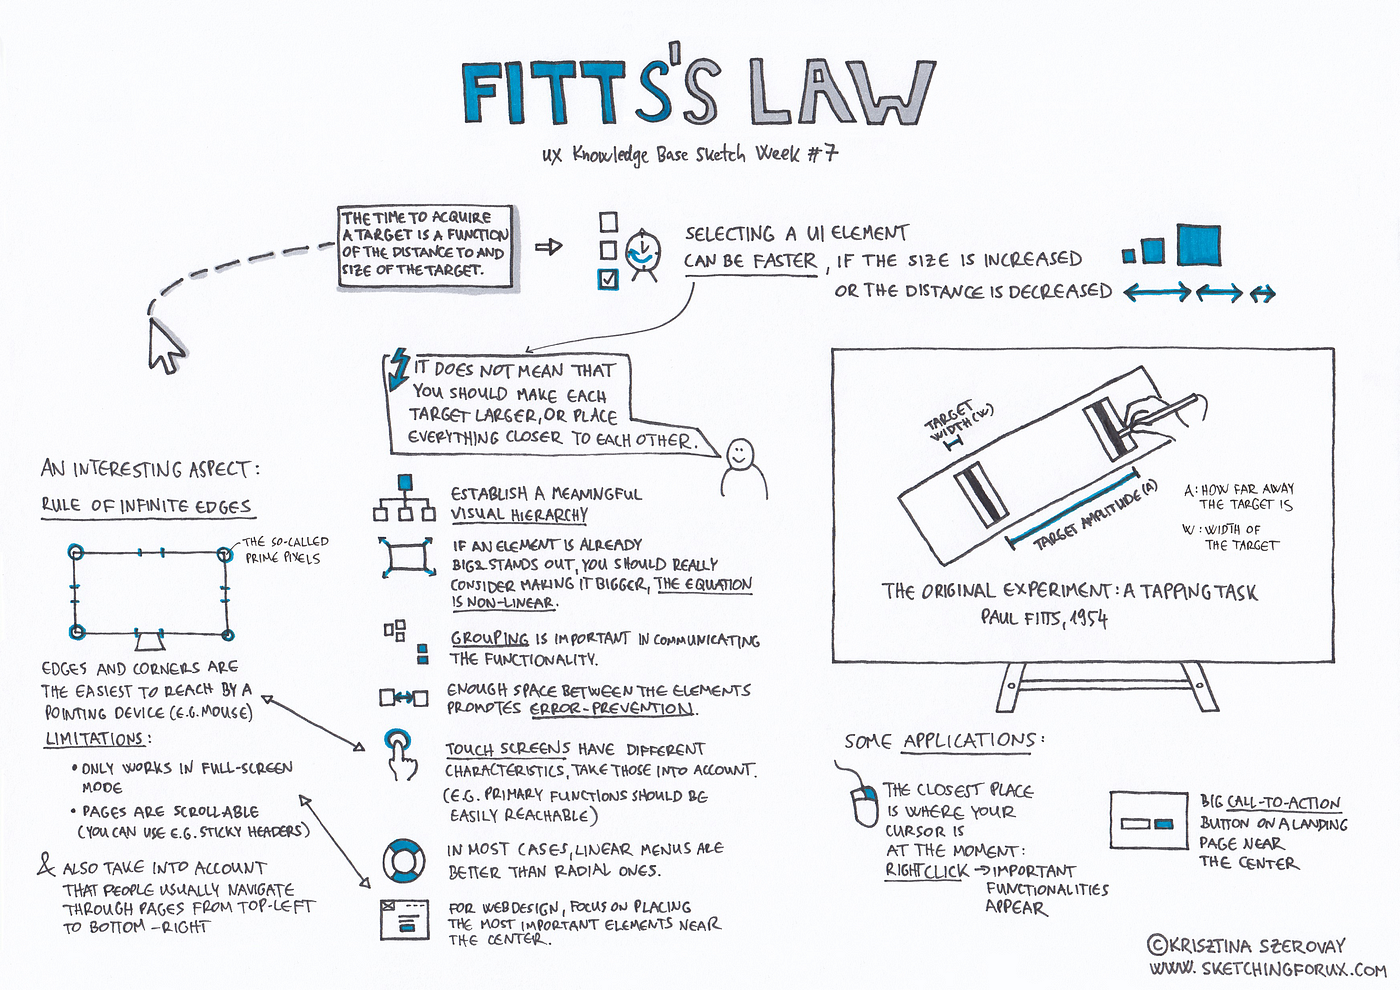 FITTS'S LAW
UX Knowledge Base Sketch Week #7
THE TIME TO ACQUIRE
A TARGET IS A FUNCTION
OF THE DISTANCE TO AND
SIZE OF THE TARGET.
SELECTING A UI ELEMENT
CAN BE FASTER, IF THE SIZE IS INCREASED
OR THE DISTANCE IS DECREASED
IT DOES NOT MEAN THAT
YOU SHOULD MAKE EACH
TARGET LARGER, OR PLACE
EVERYTHING CLOSER TO EACH OTHER.
AN INTERESTING ASPECT:
RULE OF INFINITE EDGES
THE SO-CALLED
PRIME PIXELS
EDGES AND CORNERS ARE
THE EASIEST TO REACH BY A
POINTING DEVICE (E.G. MOUSE)
LIMITATIONS:
• ONLY WORKS IN FULL-SCREEN
MODE
• PAGES ARE SCROLLABLE
(YOU CAN USE E.G. STICKY HEADERS)
& ALSO TAKE INTO ACCOUNT
THAT PEOPLE USUALLY NAVIGATE
THROUGH PAGES FROM TOP-LEFT
TO BOTTOM-RIGHT
ESTABLISH A MEANINGFUL
VISUAL HIERARCHY
IF AN ELEMENT IS ALREADY
BIG & STANDS OUT, YOU SHOULD REALLY
CONSIDER MAKING IT BIGGER, THE EQUATION
IS NON-LINEAR.
GROUPING IS IMPORTANT IN COMMUNICATING
THE FUNCTIONALITY.
ENOUGH SPACE BETWEEN THE ELEMENTS
PROMOTES ERROR-PREVENTION.
TOUCH SCREENS HAVE DIFFERENT
CHARACTERISTICS, TAKE THOSE INTO ACCOUNT.
(E.G. PRIMARY FUNCTIONS SHOULD BE
EASILY REACHABLE)
IN MOST CASES, LINEAR MENUS ARE
BETTER THAN RADIAL ONES.
FOR WEB DESIGN, FOCUS ON PLACING
THE MOST IMPORTANT ELEMENTS NEAR
THE CENTER.
TARGET
WIDTH (W)
TARGET AMPLITUDE (A)
A: HOW FAR AWAY
THE TARGET IS
W: WIDTH OF
THE TARGET
THE ORIGINAL EXPERIMENT: A TAPPING TASK
PAUL FITTS, 1954
SOME APPLICATIONS:
THE CLOSEST PLACE
IS WHERE YOUR
CURSOR IS
AT THE MOMENT:
RIGHT CLICK → IMPORTANT
FUNCTIONALITIES
APPEAR
BIG CALL-TO-ACTION
BUTTON ON A LANDING
PAGE NEAR
THE CENTER
©KRISZTINA SZEROVAY
WWW.SKETCHINGFORUX.COM